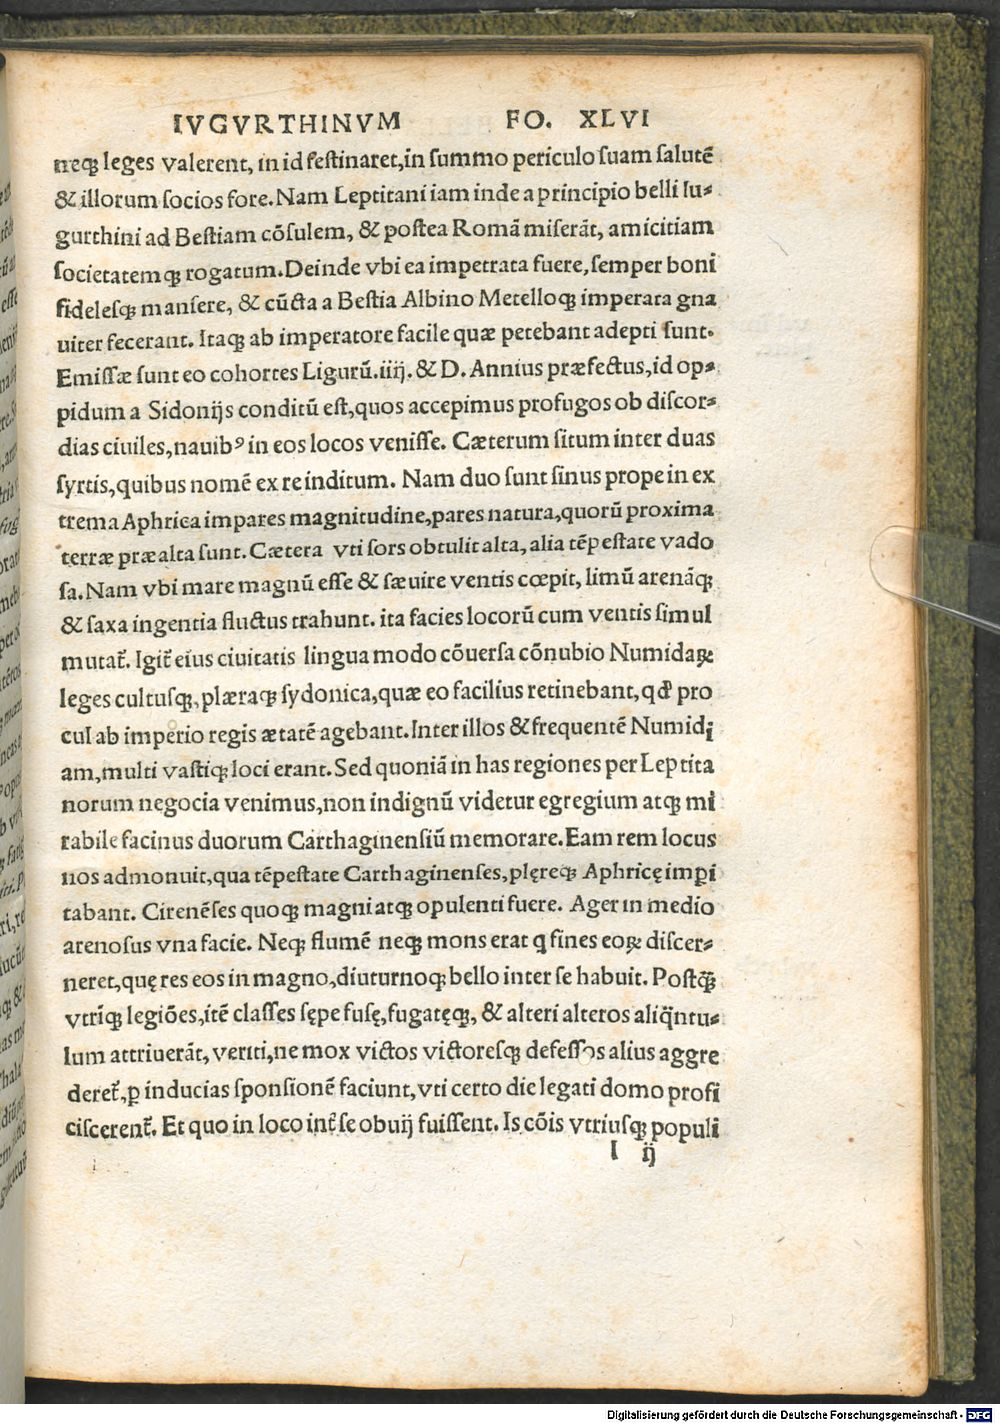 IVGVRTHINVM FO. XLVI
neqꝫ leges valerent, in id festinaret,in summo periculo suam salutē
& illorum socios fore.Nam Leptitani iam inde a principio belli Iu-
gurthini ad Bestiam cōsulem, & postea Romā miserāt, amicitiam
societatemqꝫ rogatum.Deinde vbi ea impetrata fuere,semper boni
fidelesqꝫ mansere, & cūcta a Bestia Albino Metelloqꝫ imperata gna
uiter fecerant. Itaqꝫ ab imperatore facile quæ petebant adepti sunt.
Emissæ sunt eo cohortes Ligurū.iiij. & D. Annius præfectus,id op-
pidum a Sidonijs conditū est,quos accepimus profugos ob discor-
dias ciuiles,nauibꝰ in eos locos venisse. Cæterum situm inter duas
syrtis,quibus nomē ex re inditum. Nam duo sunt sinus prope in ex
trema Aphrica impares magnitudine,pares natura,quorū proxima
terræ præalta sunt.Cætera vti sors obtulit alta, alia tēpestate vado
sa.Nam vbi mare magnū esse & sæuire ventis cœpit, limū arenāqꝫ
& saxa ingentia fluctus trahunt. ita facies locorū cum ventis simul
mutat᷑. Igit᷑ eius ciuitatis lingua modo cōuersa cōnubio Numidaꝝ
leges cultusqꝫ, plæraqꝫ sydonica,quæ eo facilius retinebant,qđ pro
cul ab imperio regis ætatē agebant.Inter illos & frequentē Numidi
am,multi vastiqꝫ loci erant.Sed quoniā in has regiones per Leptita
norum negocia venimus,non indignū videtur egregium atqꝫ mi
rabile facinus duorum Carthaginensiū memorare.Eam rem locus
nos admonuit,qua tēpestate Carthaginenses,plęreqꝫ Aphricę imꝑi
tabant. Cirenēses quoqꝫ magni atqꝫ opulenti fuere. Ager in medio
arenosus vna facie. Neqꝫ flumē neqꝫ mons erat ꝗ fines eoꝝ discer-
neret,quę res eos in magno,diuturnoqꝫ bello inter se habuit. Postqꝫ̄
vtrīqꝫ legiōes,itē classes sępe fusę,fugatęqꝫ, & alteri alteros aliq̄ntu-
lum attriuerāt, veriti,ne mox victos victoresqꝫ defessos alius aggre
deret᷑,ꝑ inducias sponsionē faciunt,vti certo die legati domo profi
ciscerent᷑. Et quo in loco int᷑ se obuij fuissent. Is cōis vtriusqꝫ populi
I ij
Digitalisierung gefördert durch die Deutsche Forschungsgemeinschaft - DFG